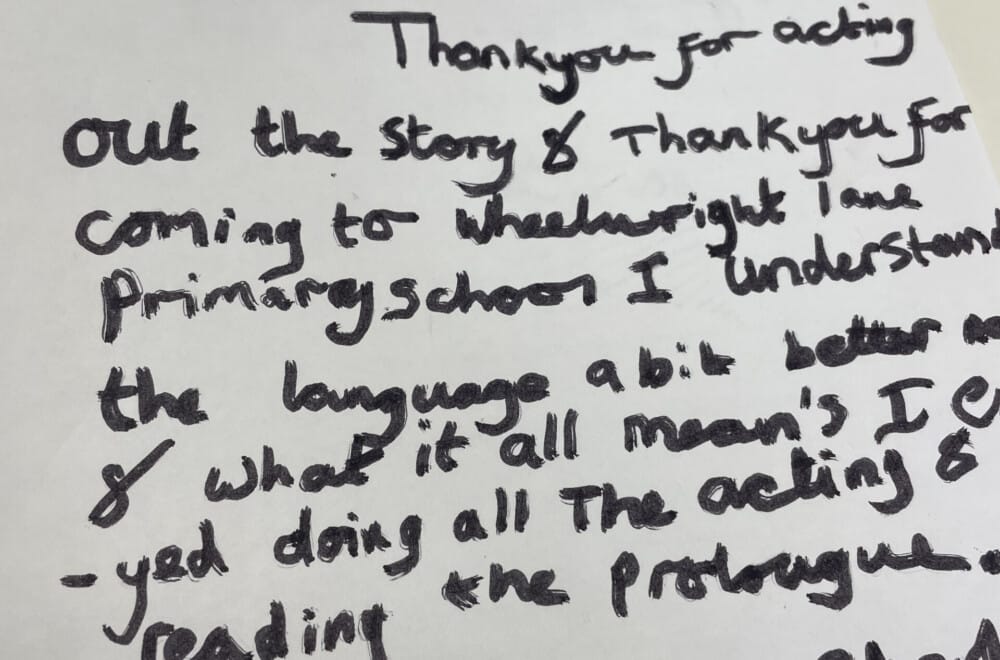 Thankyou for acting
out the story & Thankyou for
coming to wheelwright lane
primary school I understand
the language abit better
& what it all mean's I
-yed doing all The acting &
reading the prolougue